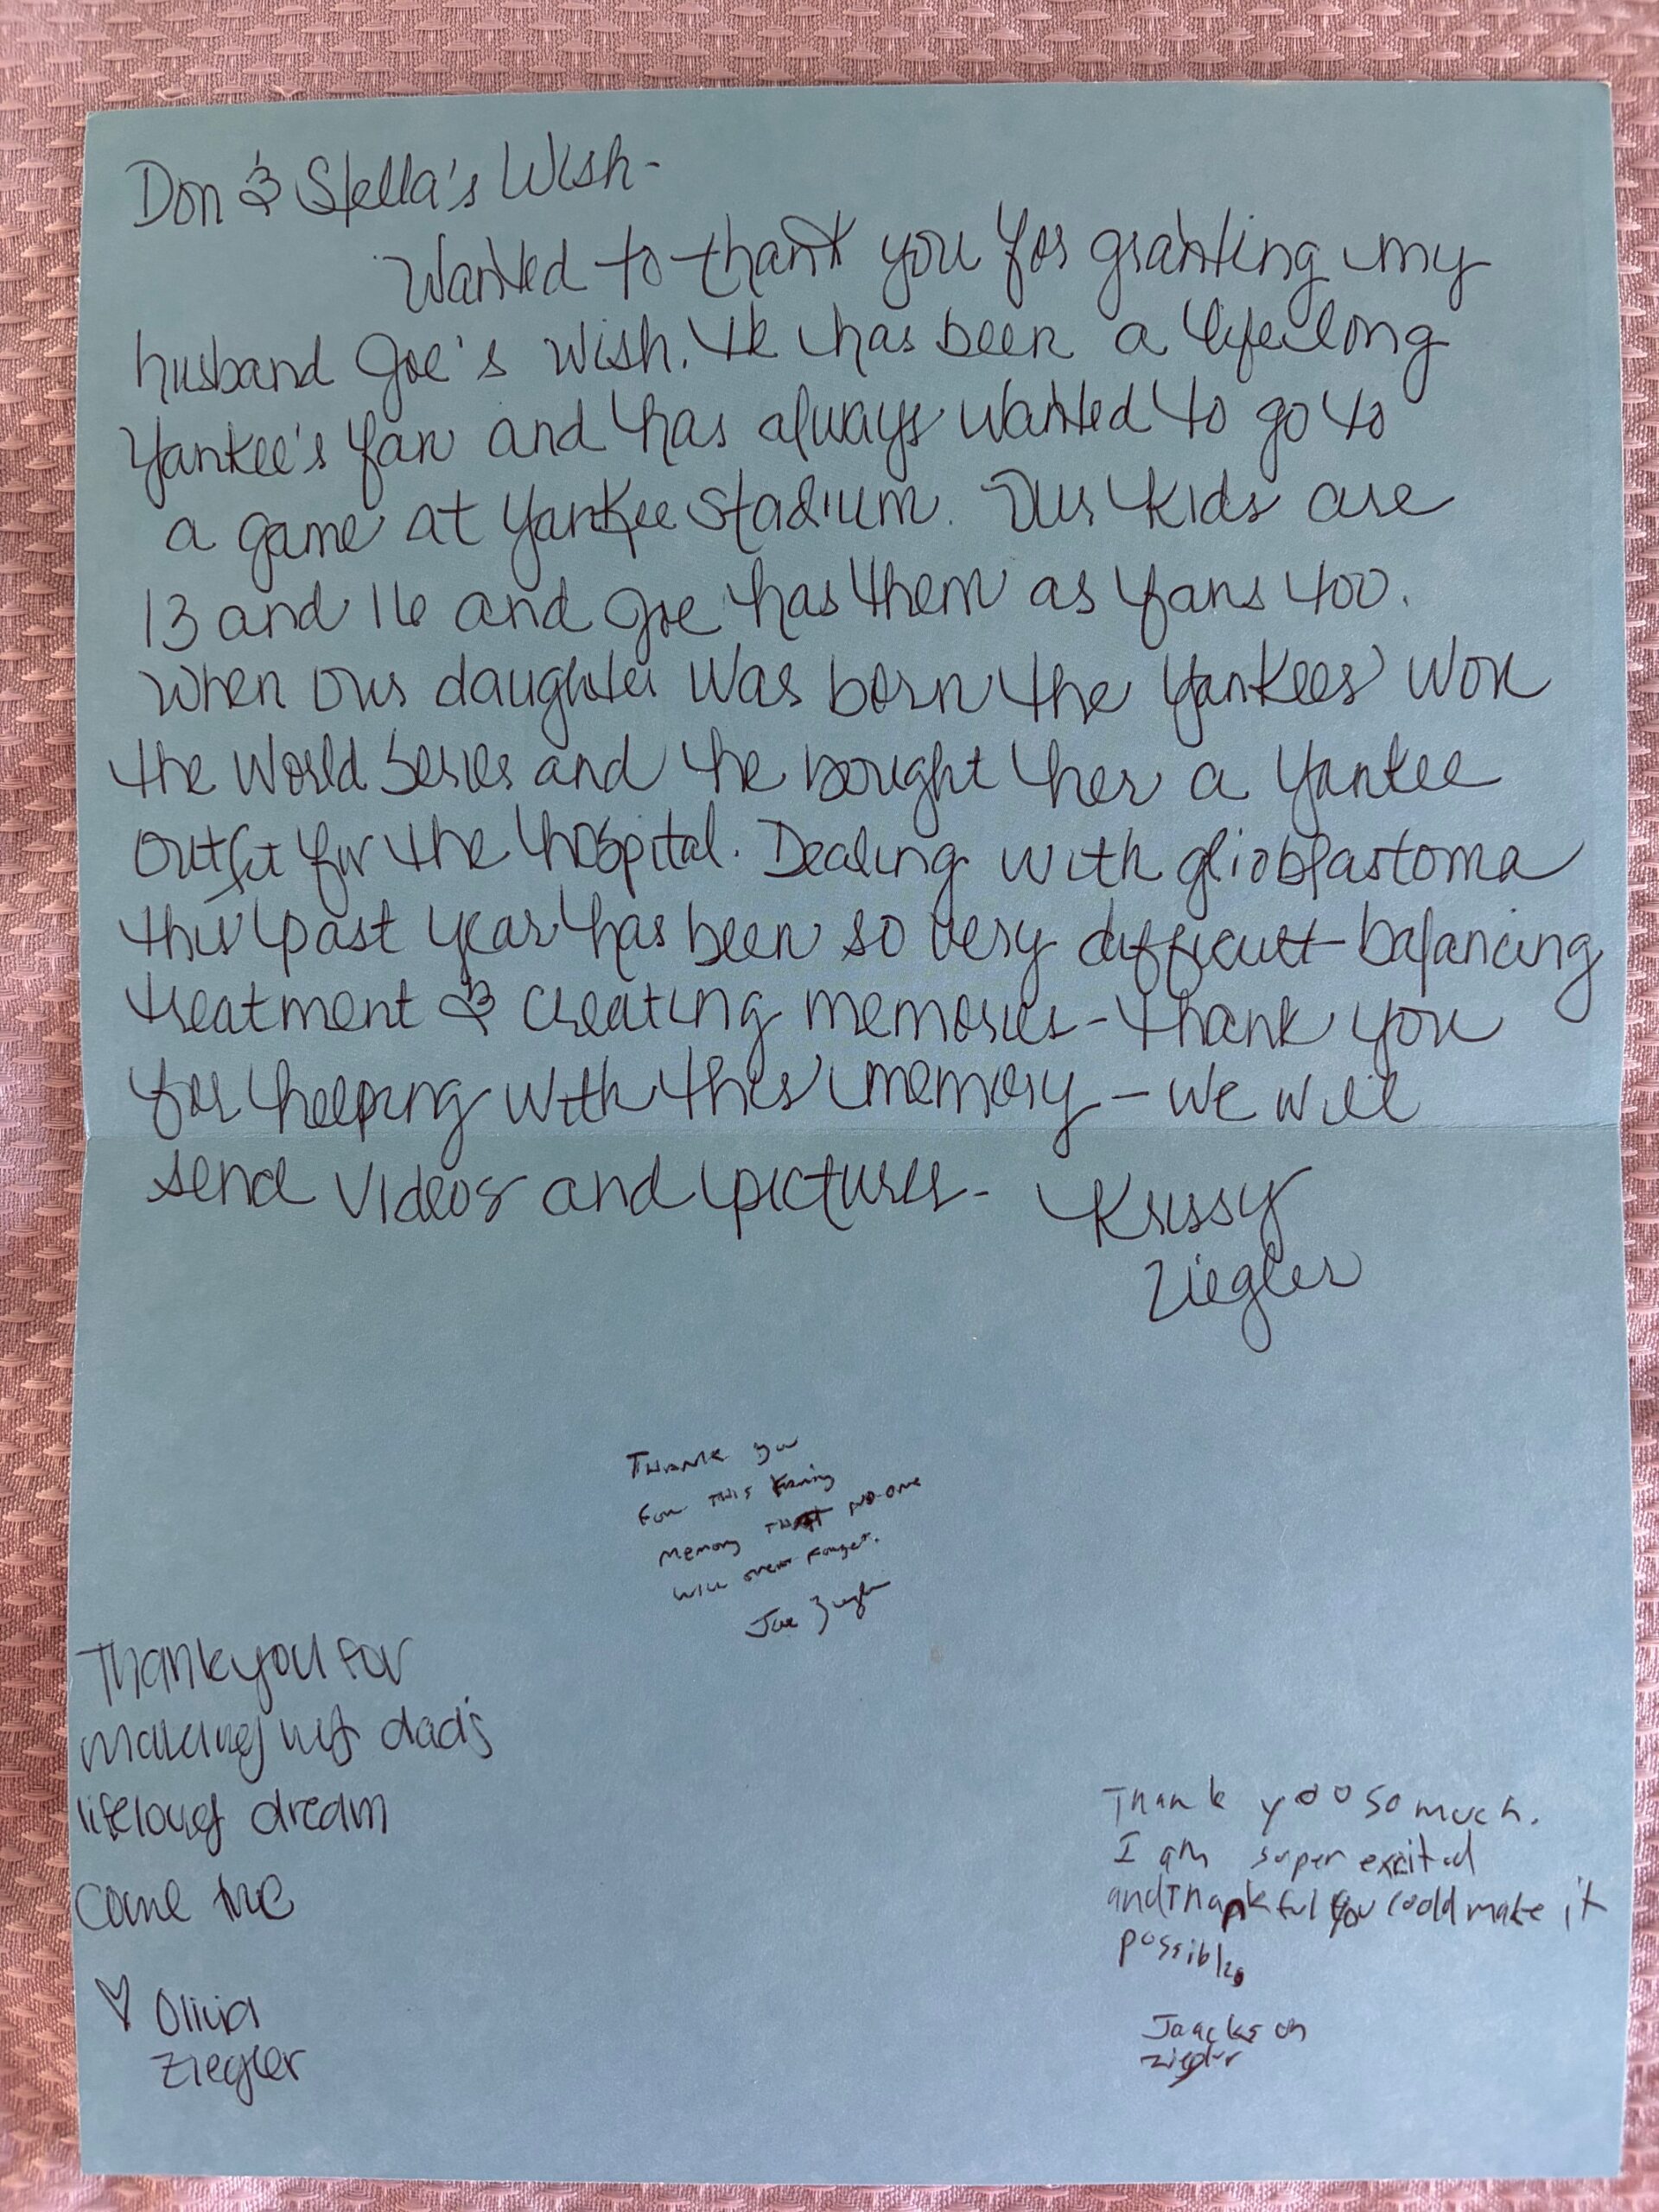 Don & Stella's Wish-
Wanted to thank you for granting my
husband Joe's wish. He has been a lifelong
Yankee's fan and has always wanted to go to
a game at Yankee Stadium. Our kids are
13 and 16 and Joe has them as fans too.
When our daughter was born the Yankees won
the World Series and he bought her a Yankee
outfit for the hospital. Dealing with glioblastoma
this past year has been so very difficult-balancing
treatment & creating memories-thank you
for helping with this memory - we will
send videos and pictures-
Krissy
Ziegler
Thank you
For this Family
memory that no-one
will ever forget.
Joe Ziegler
Thank you for
making my dad's
lifelong dream
come true
♡ Olivia
Ziegler
Thank you so much.
I am super excited
and thankful you could make it
possible.
Jaackson
Ziegler